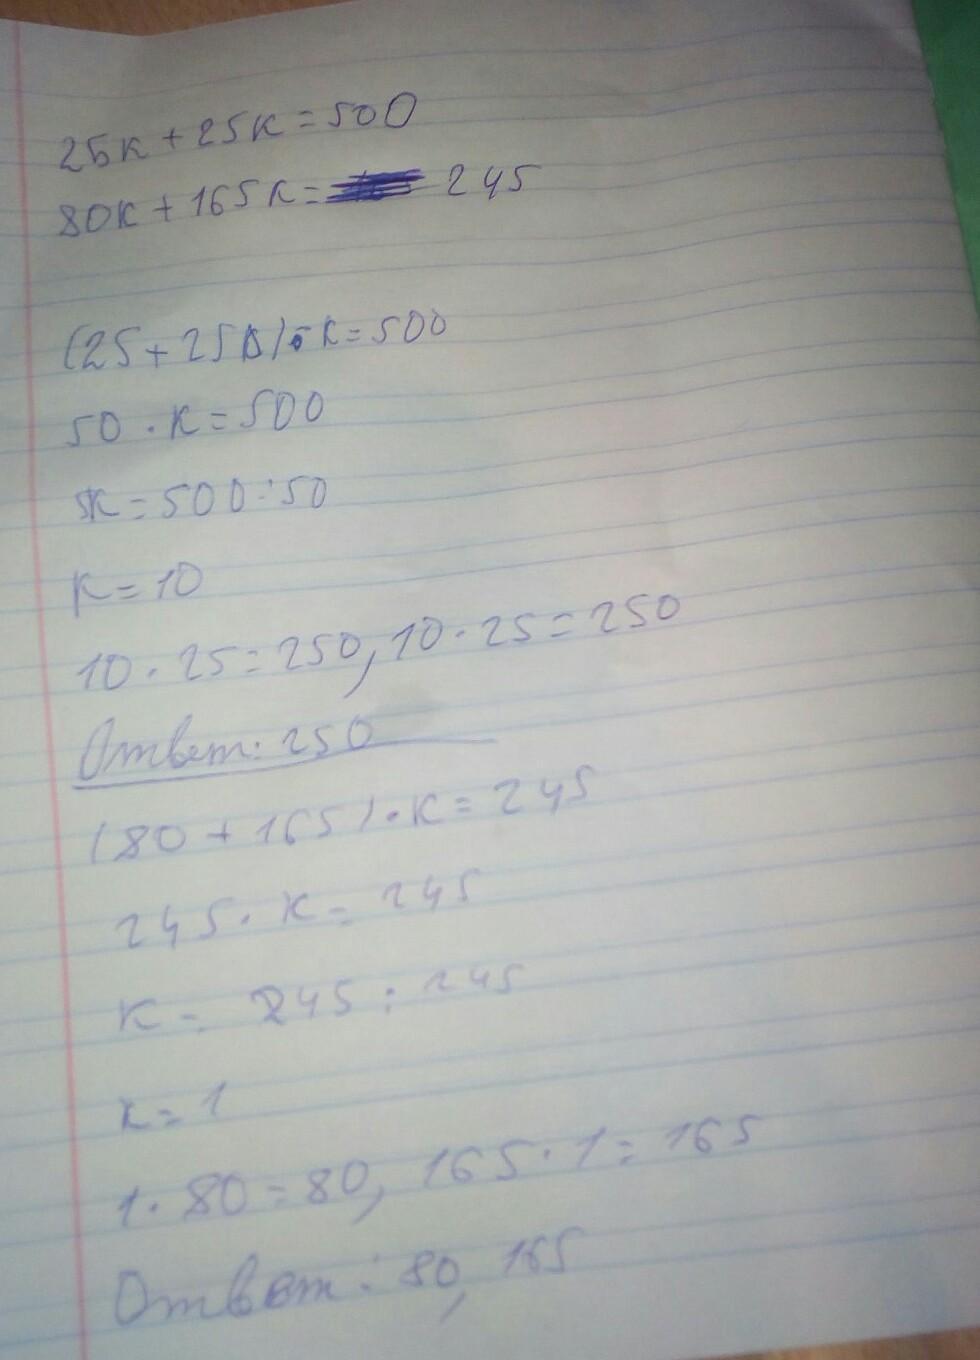 25к + 25к = 500
80к + 165к = 245
(25 + 25)·к = 500
50 · к = 500
к = 500 : 50
к = 10
10 · 25 = 250, 10 · 25 = 250
Ответ: 250
(80 + 165)·к = 245
245 · к = 245
к = 245 : 245
к = 1
1 · 80 = 80, 165 · 1 = 165
Ответ: 80, 165